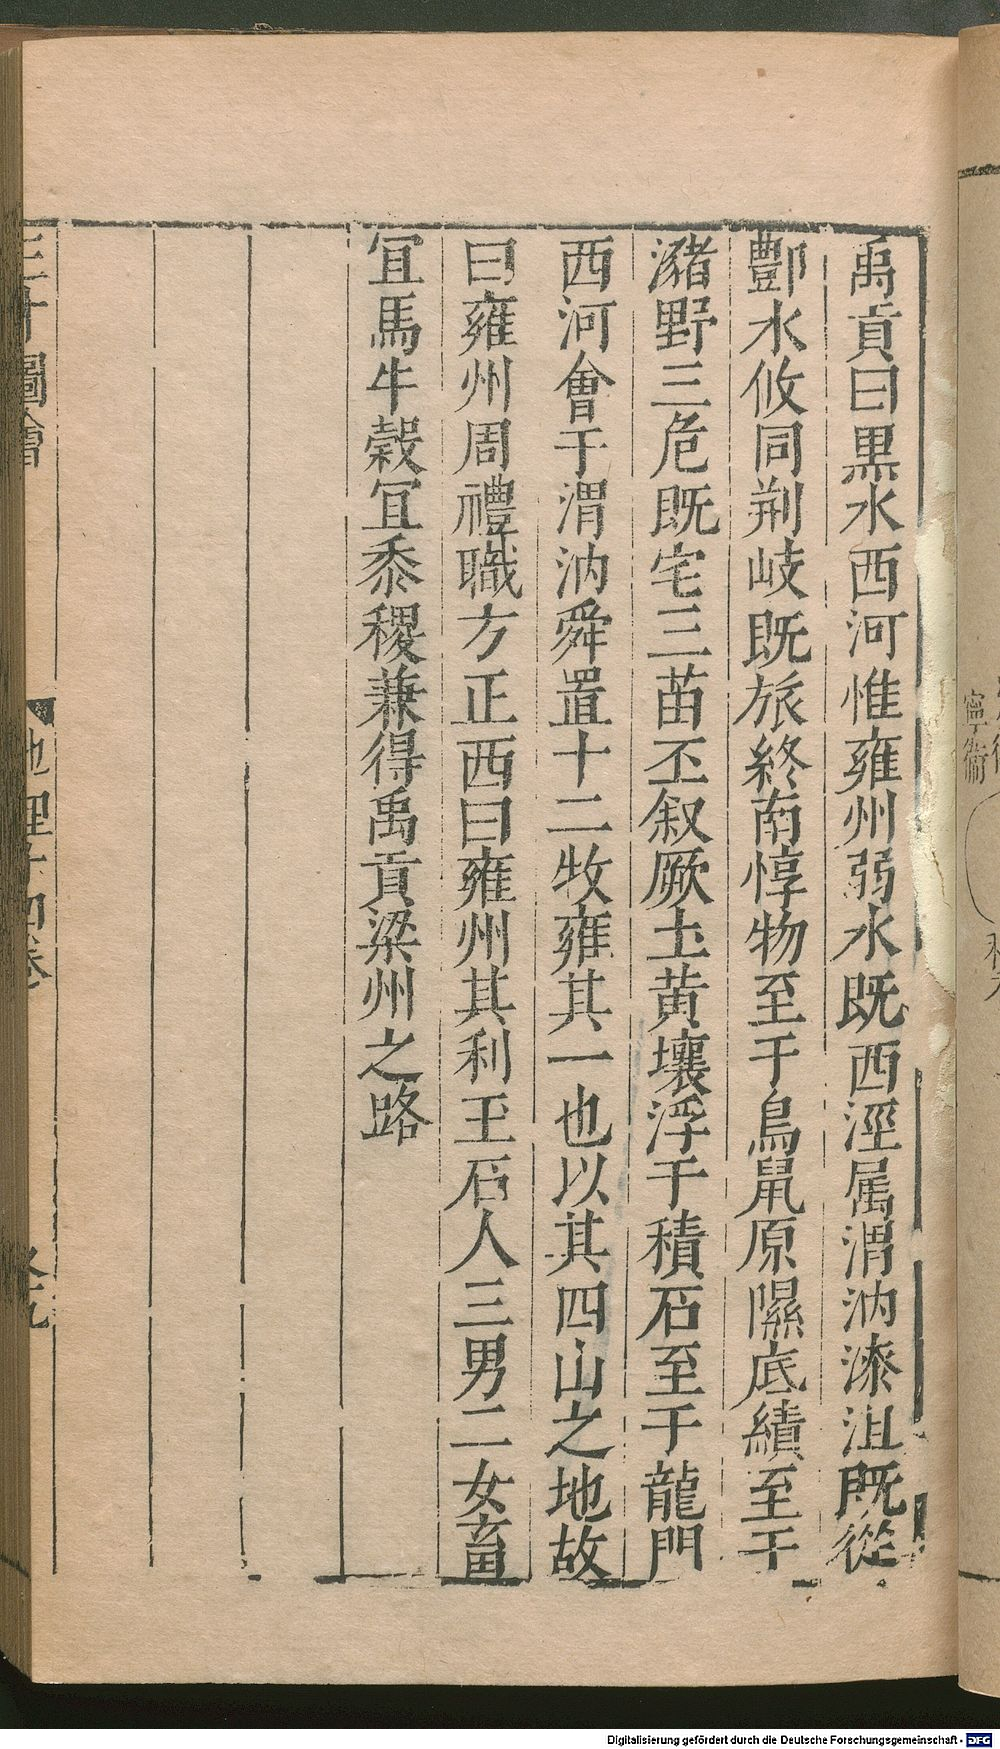 禹貢曰黒水西河惟雍州弱水既西涇属渭汭漆沮既從
酆水攸同荆岐既旅終南惇物至于鳥鼠原隰底績至于
瀦野三危既宅三苗丕叙厥土黄壤浮于積石至于龍門
西河會于渭汭舜置十二牧雍其一也以其四山之地故
曰雍州周禮職方正西曰雍州其利玉石人三男二女畜
宜馬牛榖宜黍稷兼得禹貢梁州之路
三才圖會
地理十四卷
寧衞
Digitalisierung gefördert durch die Deutsche Forschungsgemeinschaft - DFG